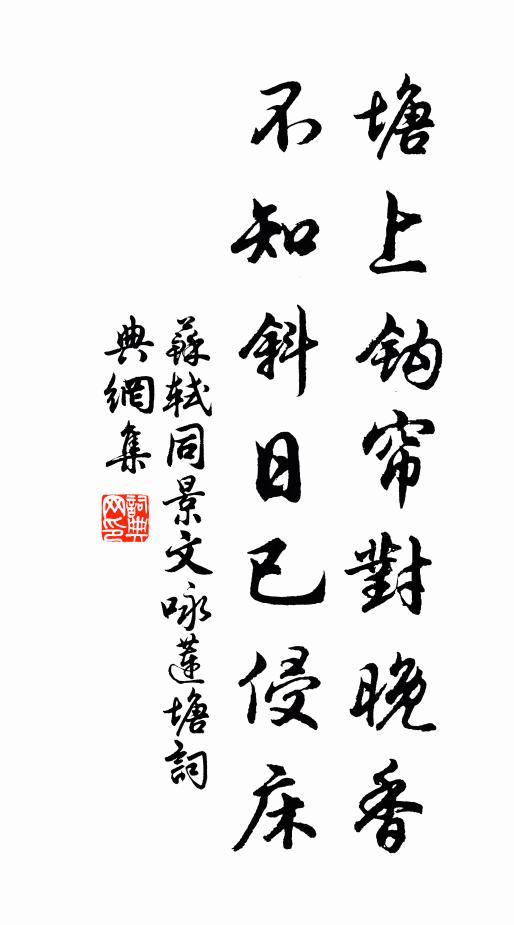 塘上鈎帘對晚香
不知斜日已侵床
蘇軾同景文咏蓮塘詞
典網集
詞典
网印